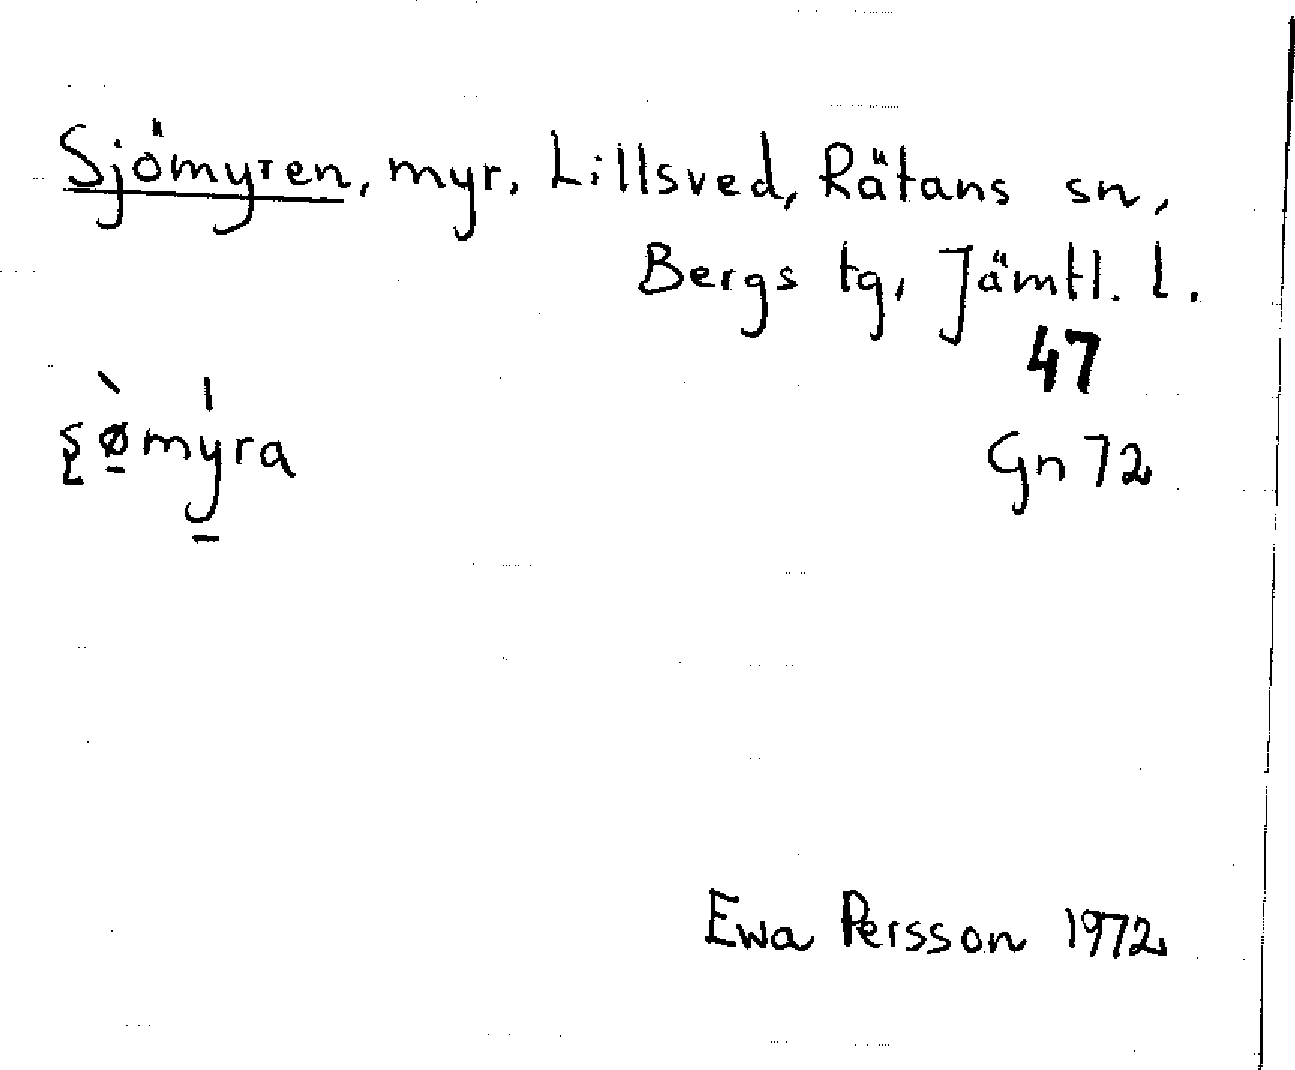 Sjömyren, myr, Lillsved, Rätans sn,
Bergs tg, Jämtl. l.
47
ʂø̠̀my̠̍ra
Gn 72
Ewa Persson 1972